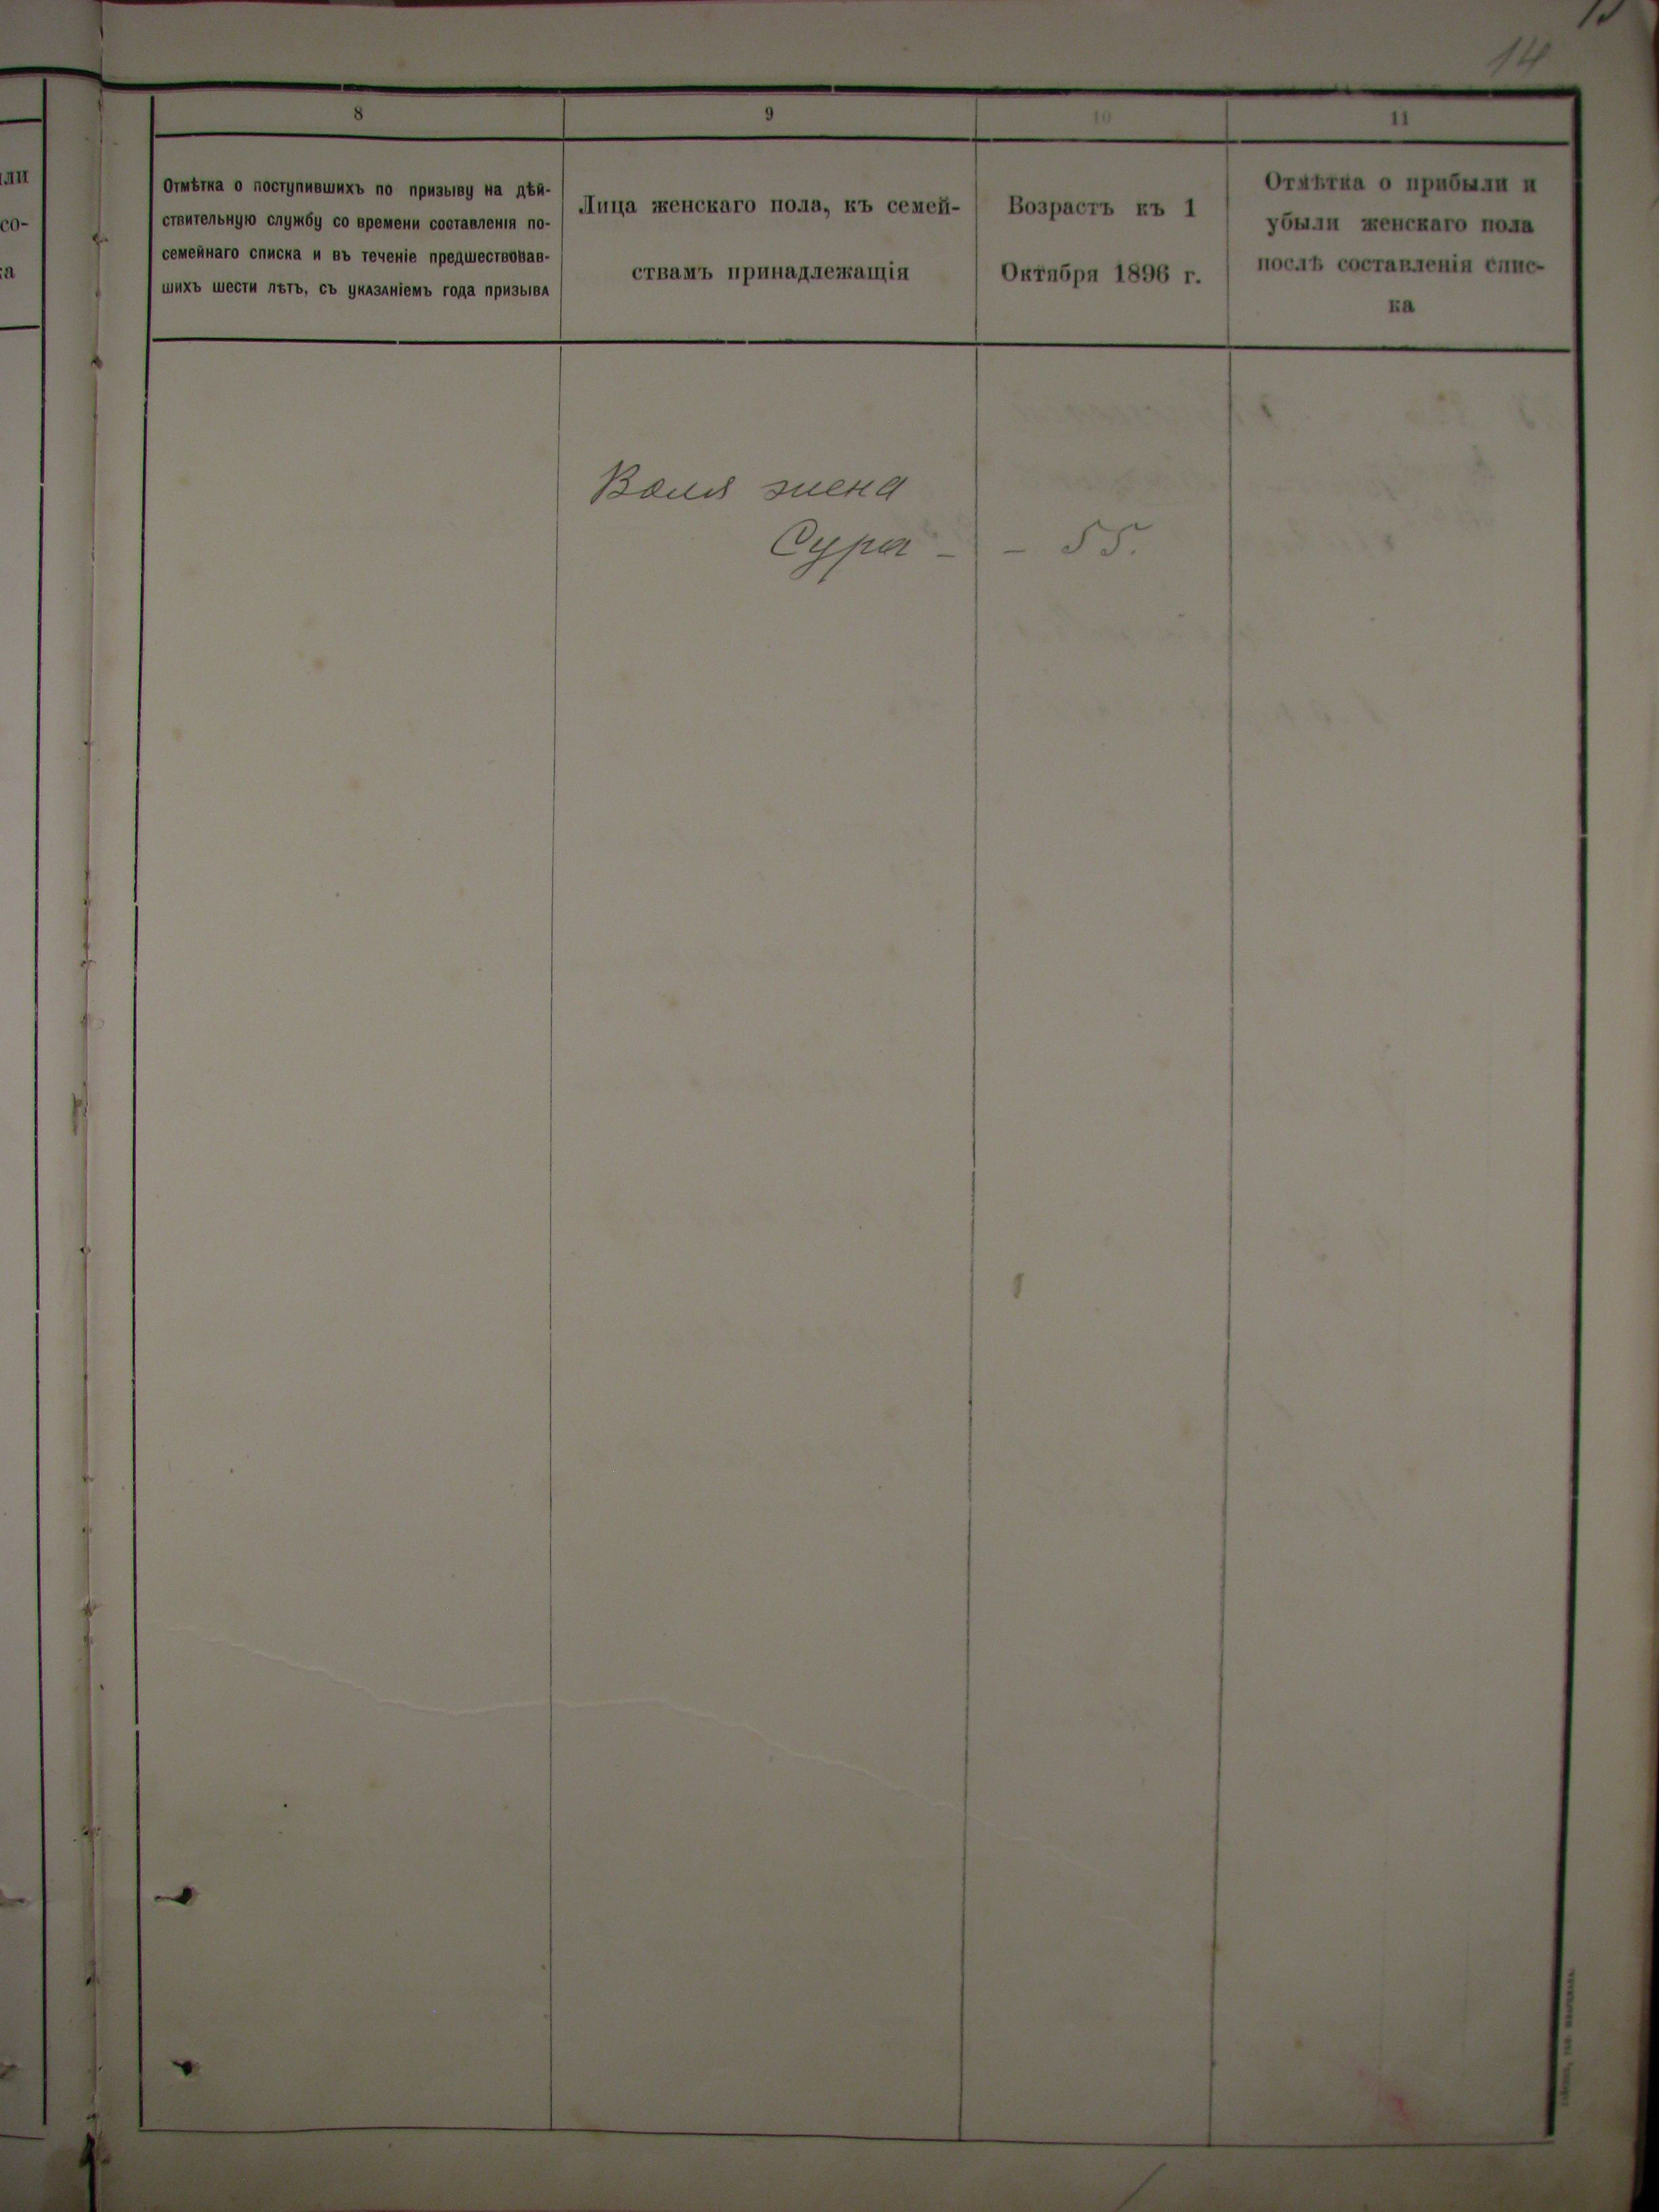 14
8
9
10
11
Отмѣтка о поступившихъ по призыву на дѣй-
ствительную службу со времени составленія по-
семейнаго списка и въ теченіе предшествовав-
шихъ шести лѣтъ, съ указаніемъ года призыва
Лица женскаго пола, къ семей-
ствамъ принадлежащія
Возрастъ къ 1
Октября 1896 г.
Отмѣтка о прибыли и
убыли женскаго пола
послѣ составленія спис-
ка
жена
Сура - - 55.